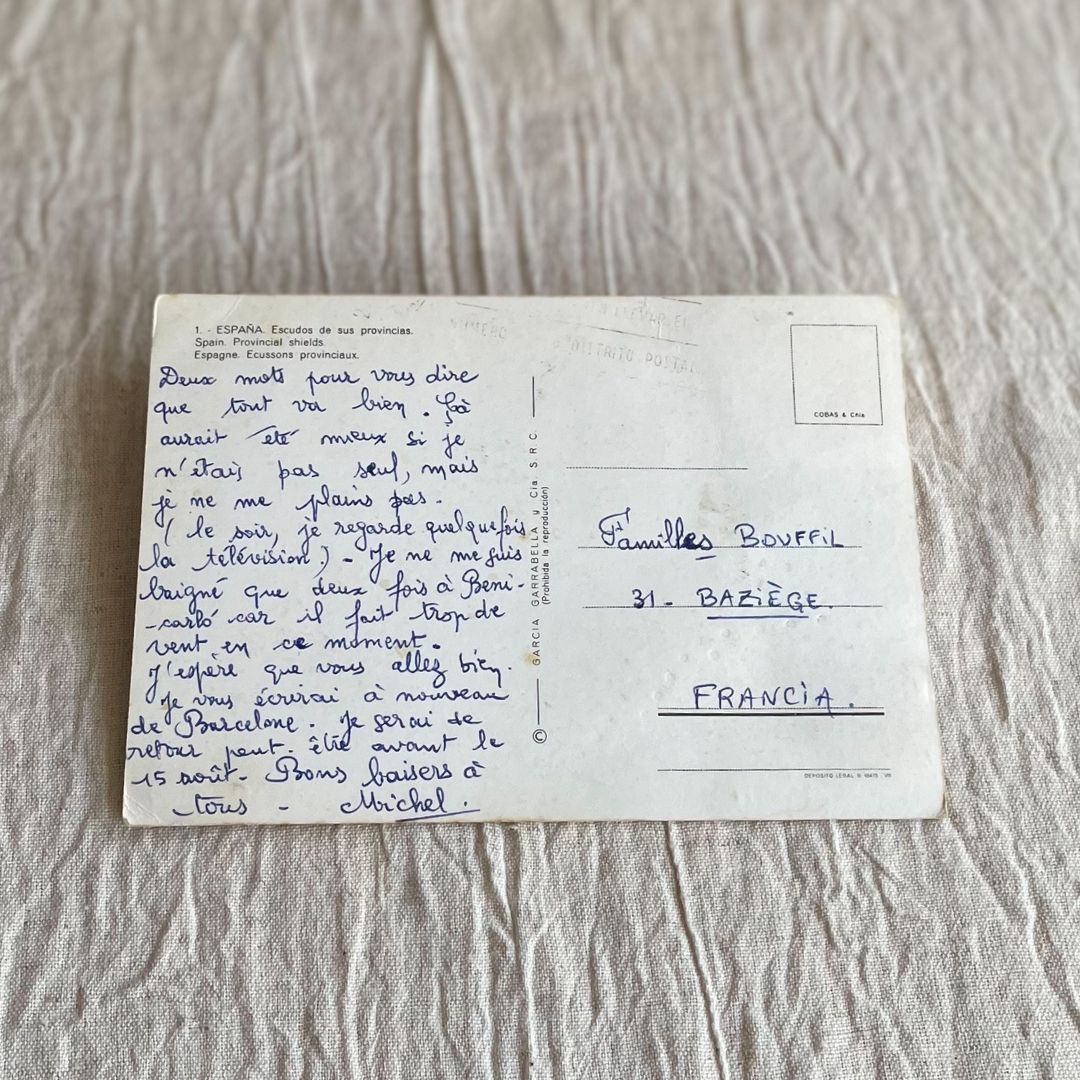 1. - ESPAÑA. Escudos de sus provincias.
Spain. Provincial shields.
Espagne. Ecussons provinciaux.
Deux mots pour vous dire
que tout va bien. Çà
aurait été mieux si je
n'étais pas seul, mais
je ne me plains pas.
( le soir, je regarde quelquefois
la télévision.) - Je ne me suis
baigné que deux fois à Beni-
-carló car il fait trop de
vent en ce moment.
J'espère que vous allez bien.
Je vous écrirai à nouveau
de Barcelone. Je serai de
retour peut-être avant le
15 août. Bons baisers à
tous - Michel.
© GARCIA GARRABELLA y Cía. S.R.C.
(Prohibida la reproducción)
COBAS & Cñia
Familles BOUFFIL
31 - BAZIÈGE.
FRANCIA.
DEPOSITO LEGAL B.